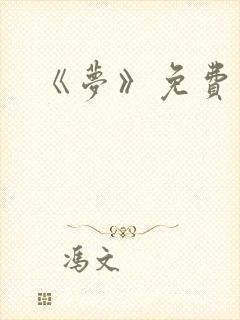 《夢》免費
馮文